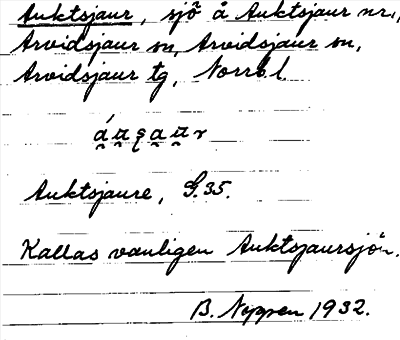 Auktsjaur, sjö å Auktsjaur nr 1,
Arvidsjaur sn, Arvidsjaur sn,
Arvidsjaur tg, Norrb l.
Auktsjaure, G. 35.
Kallas vanligen Auktsjaursjön.
B. Nygren 1932.